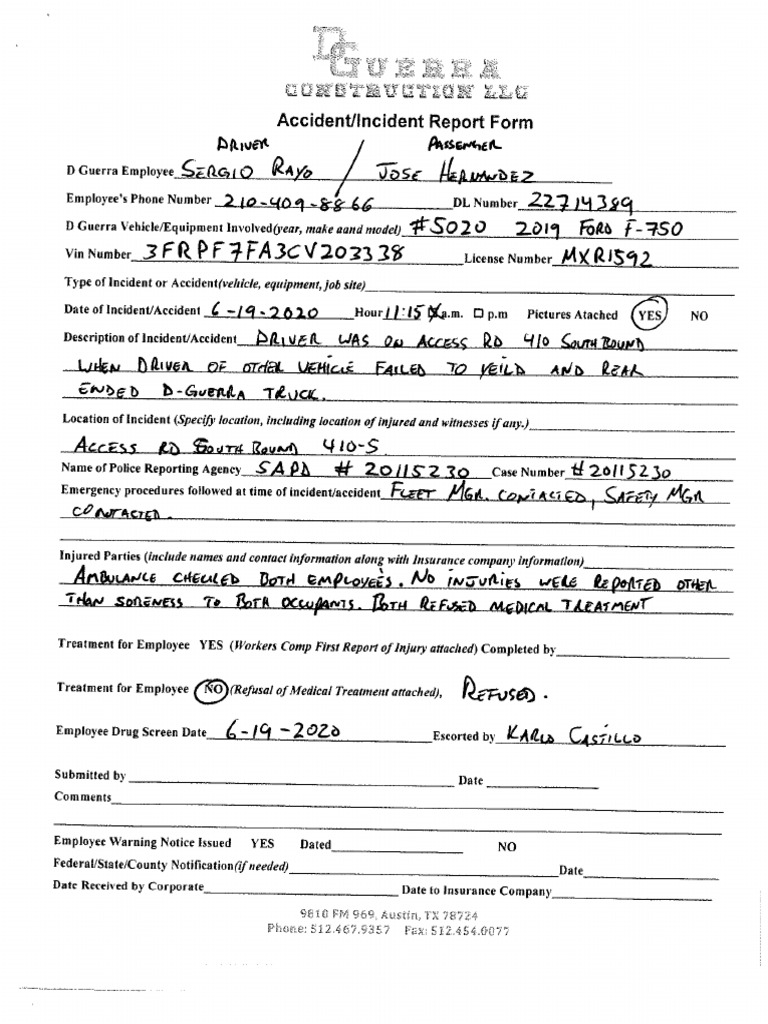 D GUERRA
CONSTRUCTION LLC
Accident/Incident Report Form
DRIVER PASSENGER
D Guerra Employee SERGIO RAYO / JOSE HERNANDEZ
Employee's Phone Number 210-409-8866 DL Number 22714389
D Guerra Vehicle/Equipment Involved(year, make aand model) #5020 2019 FORD F-750
Vin Number 3FRPF7FA3CV203338 License Number MXR1592
Type of Incident or Accident(vehicle, equipment, job site)
Date of Incident/Accident 6-19-2020 Hour 11:15 a.m. p.m Pictures Atached YES NO
Description of Incident/Accident DRIVER WAS ON ACCESS RD 410 SOUTH BOUND
WHEN DRIVER OF OTHER VEHICLE FAILED TO YEILD AND REAR
ENDED D-GUERRA TRUCK.
Location of Incident (Specify location, including location of injured and witnesses if any.)
ACCESS RD SOUTH BOUND 410-S
Name of Police Reporting Agency SAPD # 20115230 Case Number #20115230
Emergency procedures followed at time of incident/accident FLEET MGR. CONTACTED, SAFETY MGR
CONTACTED.
Injured Parties (include names and contact information along with Insurance company information)
AMBULANCE CHECKED BOTH EMPLOYEES. NO INJURIES WERE REPORTED OTHER
THAN SORENESS TO BOTH OCCUPANTS. BOTH REFUSED MEDICAL TREATMENT
Treatment for Employee YES (Workers Comp First Report of Injury attached) Completed by
Treatment for Employee NO (Refusal of Medical Treatment attached), REFUSED.
Employee Drug Screen Date 6-19-2020 Escorted by KARLO CASTILLO
Submitted by Date
Comments
Employee Warning Notice Issued YES Dated NO
Federal/State/County Notification(if needed) Date
Date Received by Corporate Date to Insurance Company
9810 FM 969, Austin, TX 78724
Phone: 512.467.9357 Fax: 512.454.0077